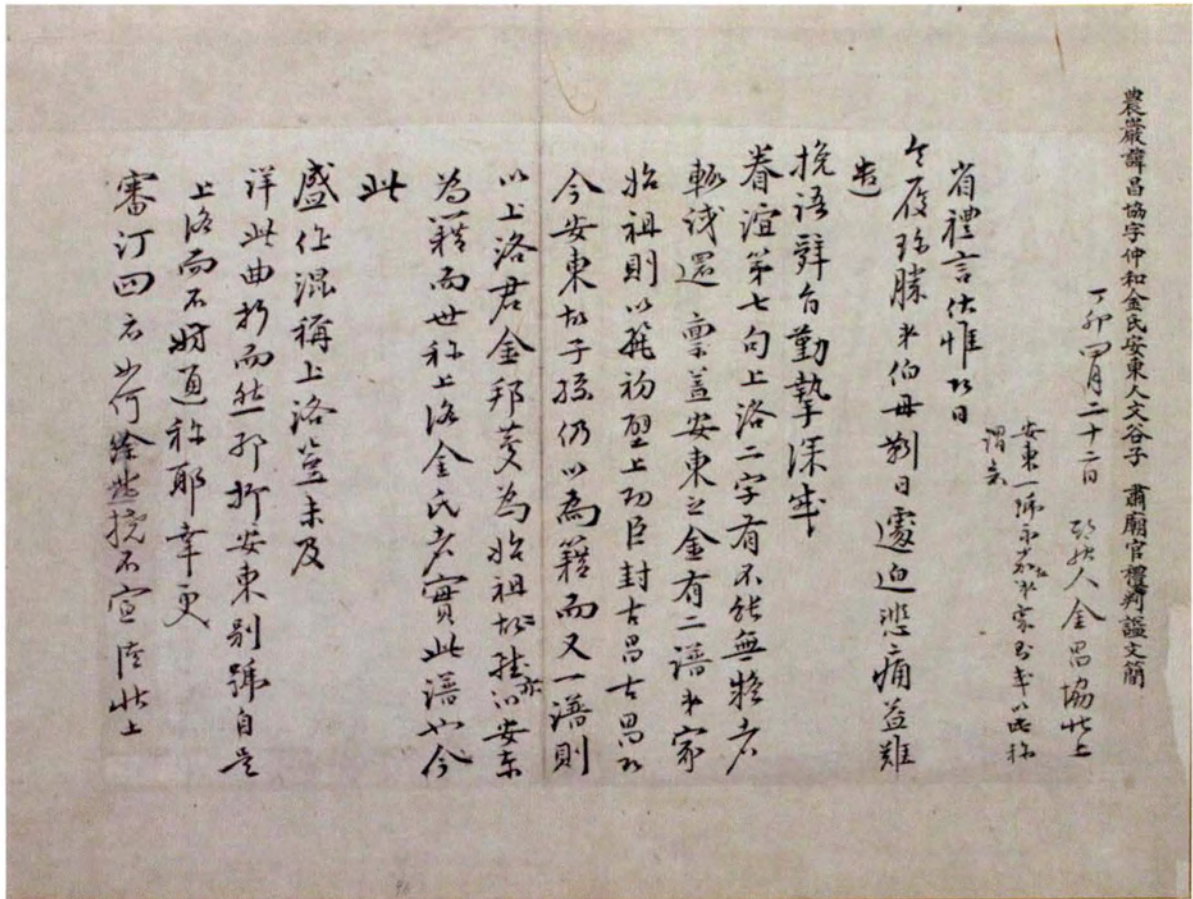 農巖諱昌協字仲和金氏安東人文谷子 肅廟官禮判謚文簡
丁卯四月二十二日 功服人金昌協狀上
安東一號永嘉故弟家多單以此称
謂矣
省禮言伏惟即日
令履珍勝弟伯母葬日遽迫悲痛益難
遣
挽語辭旨勤摯深荷
眷誼第七句上洛二字有不能無疑者
輒茲還 稟盖安東之金有二譜弟家
始祖則以麗初壁上功臣封古昌古昌即
今安東故子孫仍以為籍而又一譜則
以上洛君金邦慶為始祖故雖亦以安東
為籍而世称上洛金氏者實此譜也今
此
盛作混稱上洛豈未及
詳此曲折而然耶抑安東別號自是
上洛而不妨通称耶幸更
審訂回示如何餘悲撓不宣 狀上